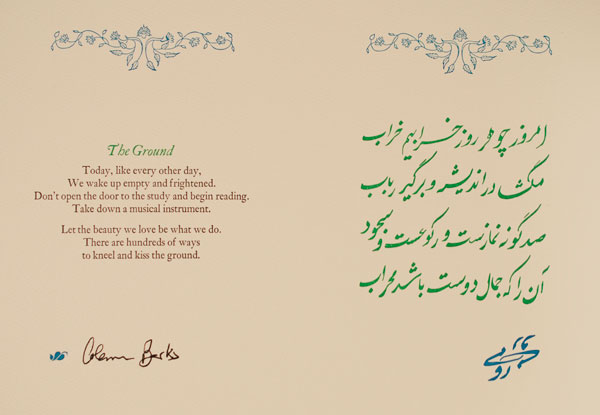 The Ground
Today, like every other day,
We wake up empty and frightened.
Don't open the door to the study and begin reading.
Take down a musical instrument.
Let the beauty we love be what we do.
There are hundreds of ways
to kneel and kiss the ground.
Coleman Barks
امروز چو هر روز خرابیم خراب
مگشا در اندیشه و برگیر رباب
صد گونه نمازست و رکوعست و سجود
آن را که جمال دوست باشد محراب